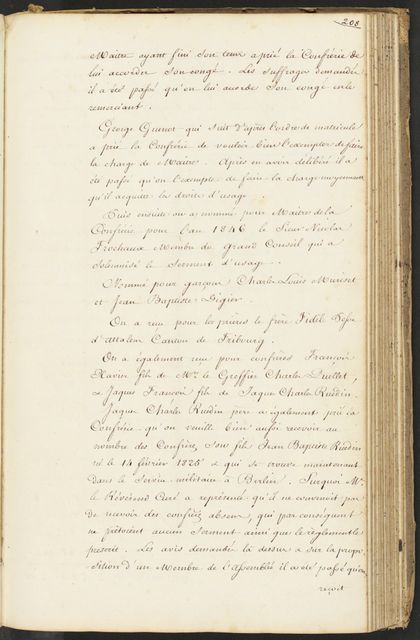 208
Maitre ayant fini son tems a prié la Confrérie de
lui accorder son congé. Les suffrages demandés
il a été passé qu'on lui accorde son congé en le
remerciant.
George Guenot qui suit d'après l'ordre de matricule
a prié la Confrérie de vouloir bien l'exempter de faire
la charge de Maitre. Après en avoir délibéré il a
été passé qu'on l'exempte de faire la charge moyennant
qu'il acquitte les droits d'usage.
Puis ensuite on a nommé pour Maitre de la
Confrérie pour l'an 1846 le Sieur Nicolas
Frochaux Membre du grand Conseil qui a
solemnisé le Serment d'usage.
Nommé pour garçons Charles Louis Muriset
et Jean Baptiste Digier.
On a reçu pour les prières le frère Fidel
d'attalens Canton de Fribourg.
On a également reçu pour confrères François
Xavier fils de Mr. le Greffier Charles Quellet,
& Jaques François fils de Jaque Charles Ruédin.
Jaque Charles Ruédin père a également prié la
Confrérie qu'on veuille bien aussi recevoir au
nombre des Confrères, Son fils Jean Baptiste Ruédin
né le 14 février 1825 & qui se trouve maintenant
dans le Service militaire à Berlin. Surquoi Mr.
le Révérend Curé a représenté qu'il ne convenoit pas
de recevoir des confrères absens, qui par conséquent
ne prétoient aucun Serment ainsi que le règlement le
prescrit. Les avis demandés là dessus & sur la propo
sition d'un Membre de l'assemblée il a été passé qu'on
reçoit